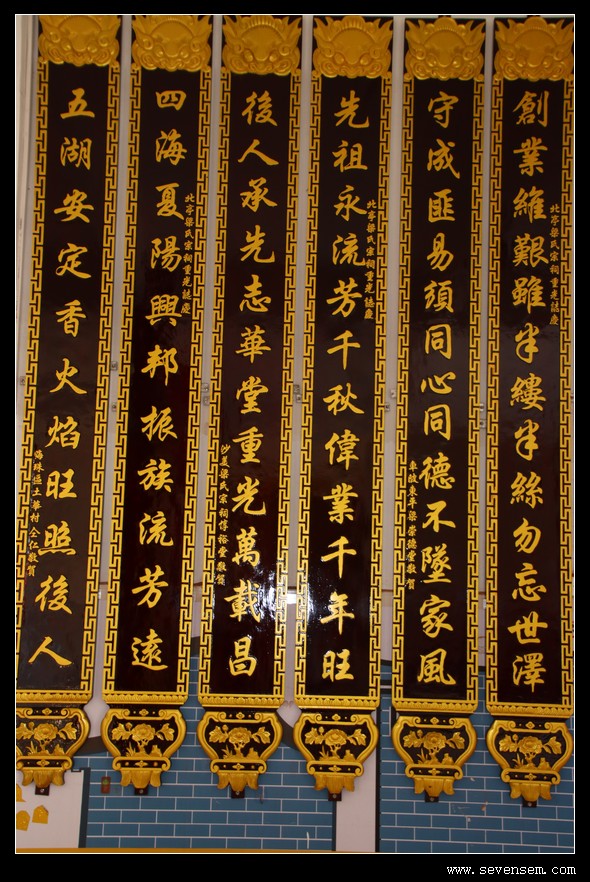 北亭梁氏宗祠重光誌慶
創業維艱雖半縷半絲勿忘世澤
守成匪易須同心同德不墜家風
車陂東平梁崇德堂敬賀
北亭梁氏宗祠重光誌慶
先祖永流芳千秋偉業千年旺
後人承先志華堂重光萬載昌
沙美梁氏宗祠惇裕堂敬賀
北亭梁氏宗祠重光誌慶
四海夏陽興邦振族流芳遠
五湖安定香火焰旺照後人
海珠區土華村仝仁敬賀
www.sevensem.com